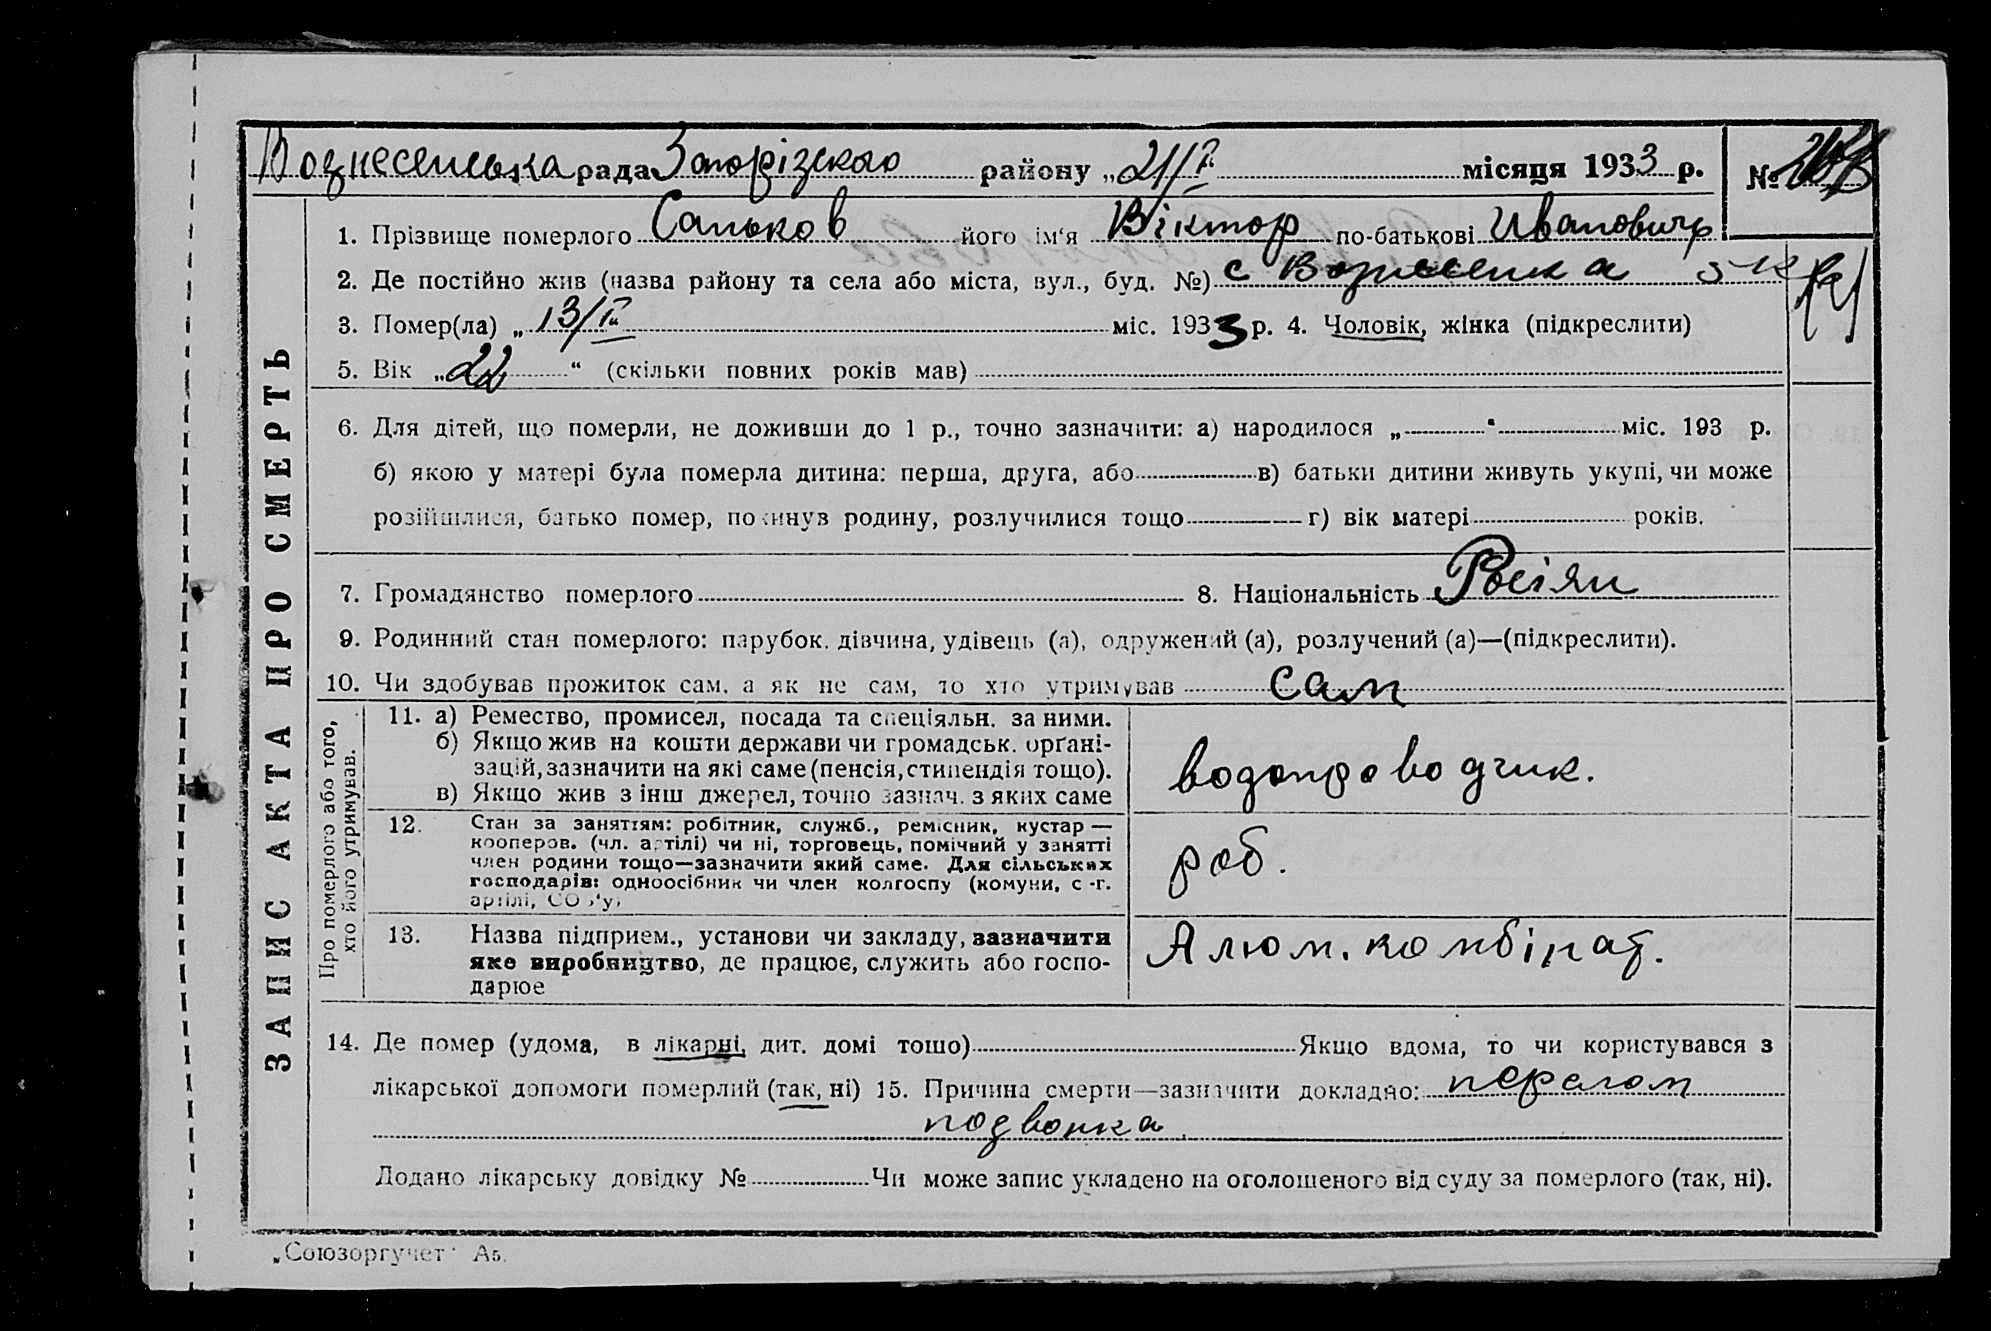 Вознесенська рада Запорізського району „21/V місяця 1933 р. №
1. Прізвище померлого Саньков його ім‘я Віктор по-батькові Ивановичр
2. Де постійно жив (назва району та села або міста, вул., буд. №) с Вознесенка
3. Помер(ла) „13/V міс. 1933 р. 4. Чоловік, жінка (підкреслити)
5. Вік „22“ (скільки повних років мав)
6. Для дітей, що померли, не доживши до 1 р., точно зазначити: а) народилося „ “ міс. 193 р.
б) якою у матері була померла дитина: перша, друга, або в) батьки дитини живуть укупі, чи може
розійшлися, батько помер, покинув родину, розлучилися тощо г) вік матері років.
7. Громадянство померлого 8. Національність Росіян
9. Родинний стан померлого: парубок. дівчина, удівець (а), одружений (а), розлучений (а)—(підкреслити).
10. Чи здобував прожиток сам. а як не сам, то хто утримував сам
ЗАПИС АКТА ПРО СМЕРТЬ
Про померлого або того,
хто його утримував.
11. а) Ремество, промисел, посада та спеціяльн. за ними.
б) Якщо жив на кошти держави чи громадськ. орґані-
зацій, зазначити на які саме (пенсія, стипендія тощо).
в) Якщо жив з інш джерел, точно зазнач. з яких саме
водопроводчик.
12. Стан за заняттям: робітник, служб., ремісник, кустар—
кооперов. (чл. артілі) чи ні, торговець, помічний у занятті
член родини тощо—зазначити який саме. Для сільських
господарів: одноосібник чи член колгоспу (комуни, с-г.
артілі,
роб.
13. Назва підприєм., установи чи закладу, зазначити
яке виробництво, де працює, служить або госпо-
дарює
Алюм. комбінат.
14. Де помер (удома, в лікарні, дит. домі тощо) Якщо вдома, то чи користувався з
лікарської допомоги померлий (так, ні) 15. Причина смерти—зазначити докладно: перелом
подвонка
Додано лікарську довідку № Чи може запис укладено на оголошеного від суду за померлого (так, ні).
„Союзоргучет“ А5.